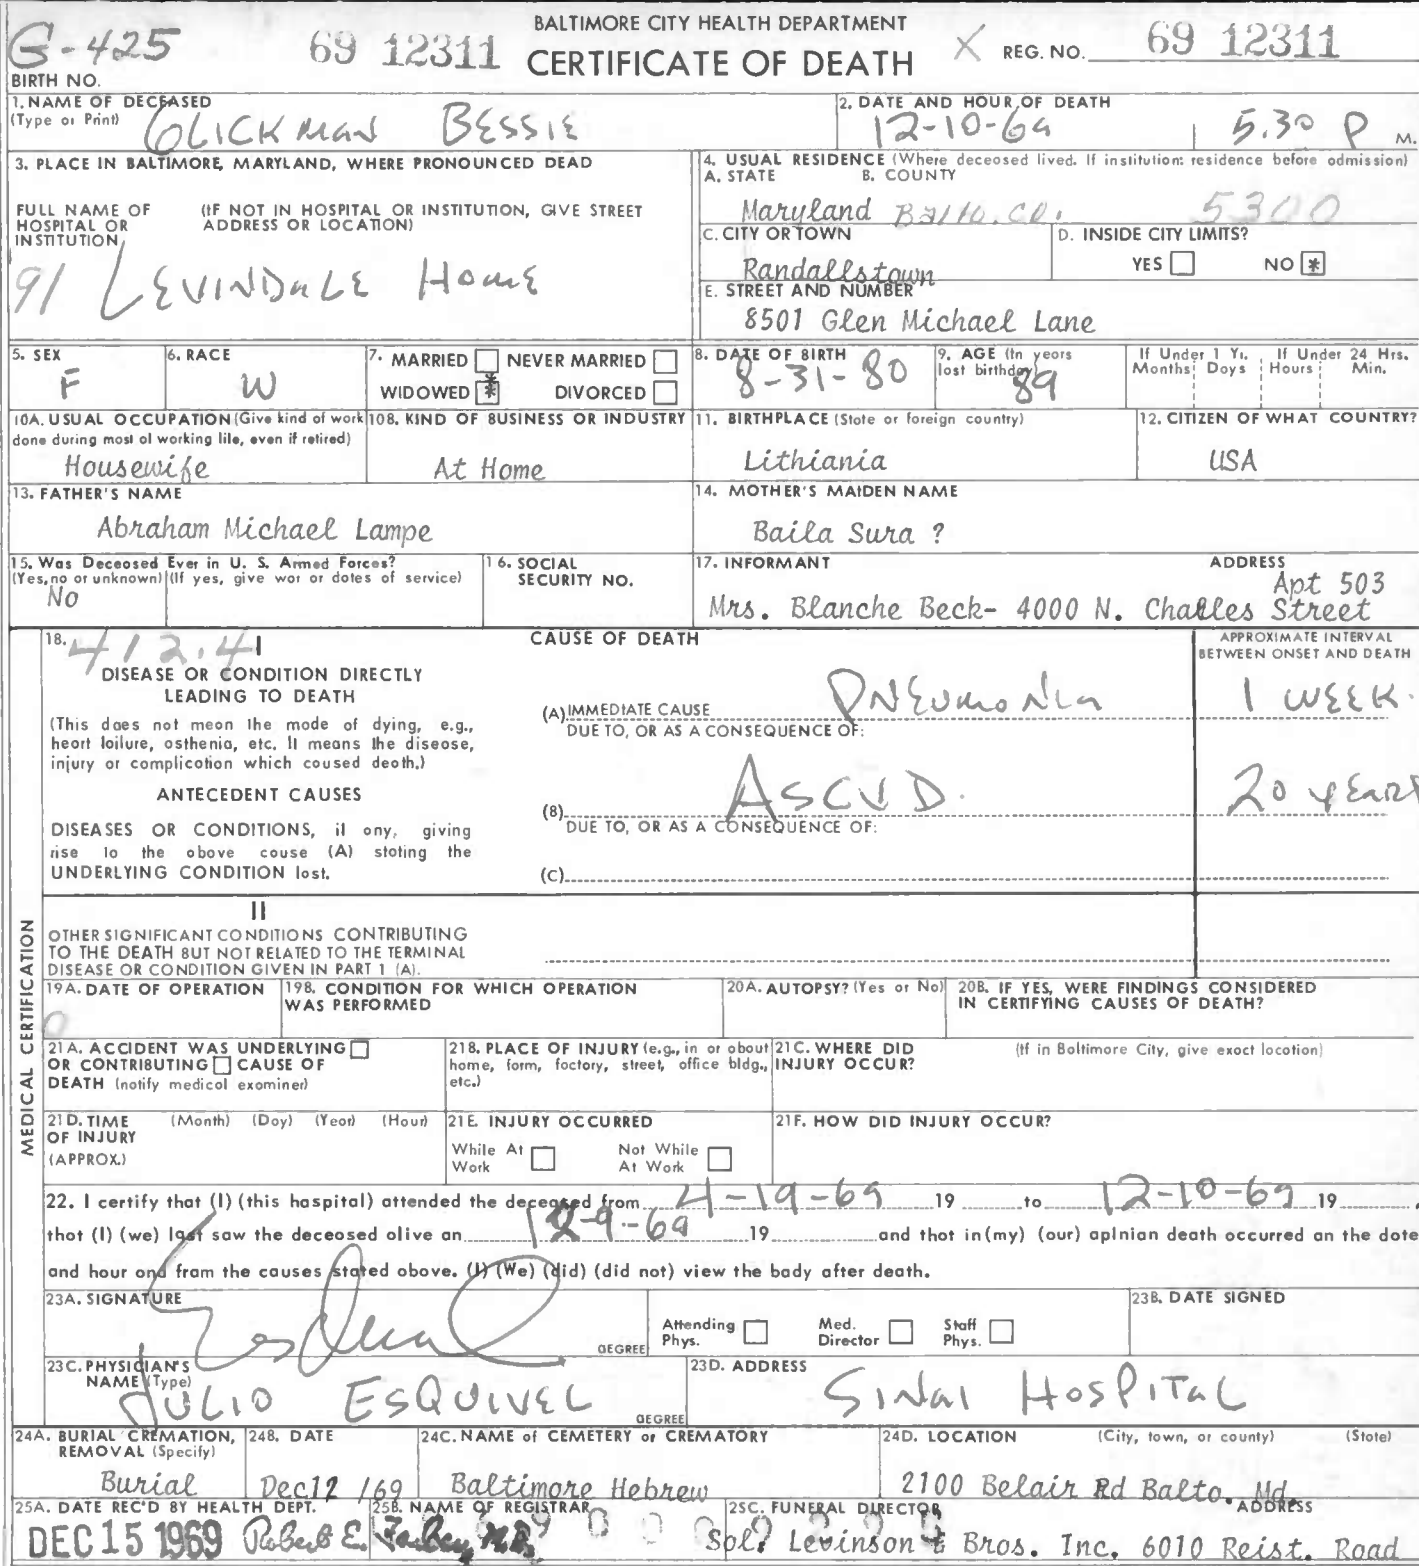 BALTIMORE CITY HEALTH DEPARTMENT
G-425 69 12311 CERTIFICATE OF DEATH X REG. NO. 69 12311
BIRTH NO.
1. NAME OF DECEASED
(Type or Print) GLICKMAN BESSIE
2. DATE AND HOUR OF DEATH
12-10-69 5.30 P M.
3. PLACE IN BALTIMORE, MARYLAND, WHERE PRONOUNCED DEAD
FULL NAME OF HOSPITAL OR INSTITUTION
(IF NOT IN HOSPITAL OR INSTITUTION, GIVE STREET ADDRESS OR LOCATION)
91 LEVINDALE HOME
4. USUAL RESIDENCE (Where deceased lived. If institution: residence before admission)
A. STATE B. COUNTY
Maryland Balto. Co. 5300
C. CITY OR TOWN
Randallstown
D. INSIDE CITY LIMITS?
YES NO *
E. STREET AND NUMBER
8501 Glen Michael Lane
5. SEX
F
6. RACE
W
7. MARRIED NEVER MARRIED
WIDOWED * DIVORCED
8. DATE OF BIRTH
8-31-80
9. AGE (In years last birthday)
89
If Under 1 Yr. Months Days
If Under 24 Hrs. Hours Min.
10A. USUAL OCCUPATION (Give kind of work done during most of working life, even if retired)
Housewife
10B. KIND OF BUSINESS OR INDUSTRY
At Home
11. BIRTHPLACE (State or foreign country)
Lithiania
12. CITIZEN OF WHAT COUNTRY?
USA
13. FATHER'S NAME
Abraham Michael Lampe
14. MOTHER'S MAIDEN NAME
Baila Sura ?
15. Was Deceased Ever in U. S. Armed Forces?
(Yes, no or unknown) (If yes, give war or dates of service)
No
16. SOCIAL SECURITY NO.
17. INFORMANT ADDRESS
Apt 503
Mrs. Blanche Beck- 4000 N. Challes Street
MEDICAL CERTIFICATION
18. 412.4 I
DISEASE OR CONDITION DIRECTLY
LEADING TO DEATH
(This does not mean the mode of dying, e.g.,
heart failure, asthenia, etc. It means the disease,
injury or complication which caused death.)
ANTECEDENT CAUSES
DISEASES OR CONDITIONS, if any, giving
rise to the above cause (A) stating the
UNDERLYING CONDITION last.
CAUSE OF DEATH
APPROXIMATE INTERVAL
BETWEEN ONSET AND DEATH
(A) IMMEDIATE CAUSE PNEUMONIA 1 WEEK.
DUE TO, OR AS A CONSEQUENCE OF:
(B) ASCVD. 20 YEARS
DUE TO, OR AS A CONSEQUENCE OF:
(C)
II
OTHER SIGNIFICANT CONDITIONS CONTRIBUTING
TO THE DEATH BUT NOT RELATED TO THE TERMINAL
DISEASE OR CONDITION GIVEN IN PART 1 (A).
19A. DATE OF OPERATION
0
19B. CONDITION FOR WHICH OPERATION
WAS PERFORMED
20A. AUTOPSY? (Yes or No)
20B. IF YES, WERE FINDINGS CONSIDERED
IN CERTIFYING CAUSES OF DEATH?
21A. ACCIDENT WAS UNDERLYING
OR CONTRIBUTING CAUSE OF
DEATH (notify medical examiner)
21B. PLACE OF INJURY (e.g., in or about
home, farm, factory, street, office bldg.,
etc.)
21C. WHERE DID
INJURY OCCUR?
(If in Baltimore City, give exact location)
21D. TIME (Month) (Day) (Year) (Hour)
OF INJURY
(APPROX.)
21E. INJURY OCCURRED
While At Work Not While At Work
21F. HOW DID INJURY OCCUR?
22. I certify that (I) (this hospital) attended the deceased from 4-19-69 19 to 12-10-69 19,
that (I) (we) last saw the deceased alive on 12-9-69 19 and that in (my) (our) opinion death occurred on the date
and hour and from the causes stated above. (I) (We) (did) (did not) view the body after death.
23A. SIGNATURE
DEGREE
Attending Phys. Med. Director Staff Phys.
23B. DATE SIGNED
23C. PHYSICIAN'S
NAME (Type)
JULIO ESQUIVEL DEGREE
23D. ADDRESS
SINAI HOSPITAL
24A. BURIAL CREMATION,
REMOVAL (Specify)
Burial
24B. DATE
Dec12 /69
24C. NAME of CEMETERY or CREMATORY
Baltimore Hebrew
24D. LOCATION (City, town, or county) (State)
2100 Belair Rd Balto. Md.
25A. DATE REC'D BY HEALTH DEPT.
DEC 15 1969
25B. NAME OF REGISTRAR
Robert E. Farber, M.D.
25C. FUNERAL DIRECTOR ADDRESS
Sol. Levinson & Bros. Inc. 6010 Reist. Road